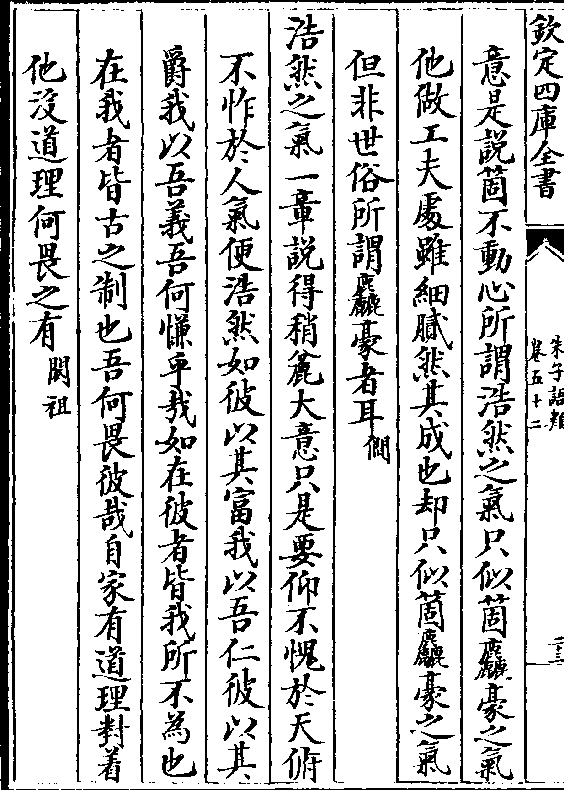 欽定四庫全書
朱子語類
卷五十二
意是說箇不動心所謂浩然之氣只似箇麤豪之氣
他做工夫處雖細膩然其成也却只似箇麤豪之氣
但非世俗所謂麤豪者耳僩
浩然之氣一章說得稍麄大意只是要仰不愧於天俯
不怍於人氣便浩然如彼以其富我以吾仁彼以其
爵我以吾義吾何慊乎哉如在彼者皆我所不為也
在我者皆古之制也吾何畏彼哉自家有道理對着
他沒道理何畏之有閎祖